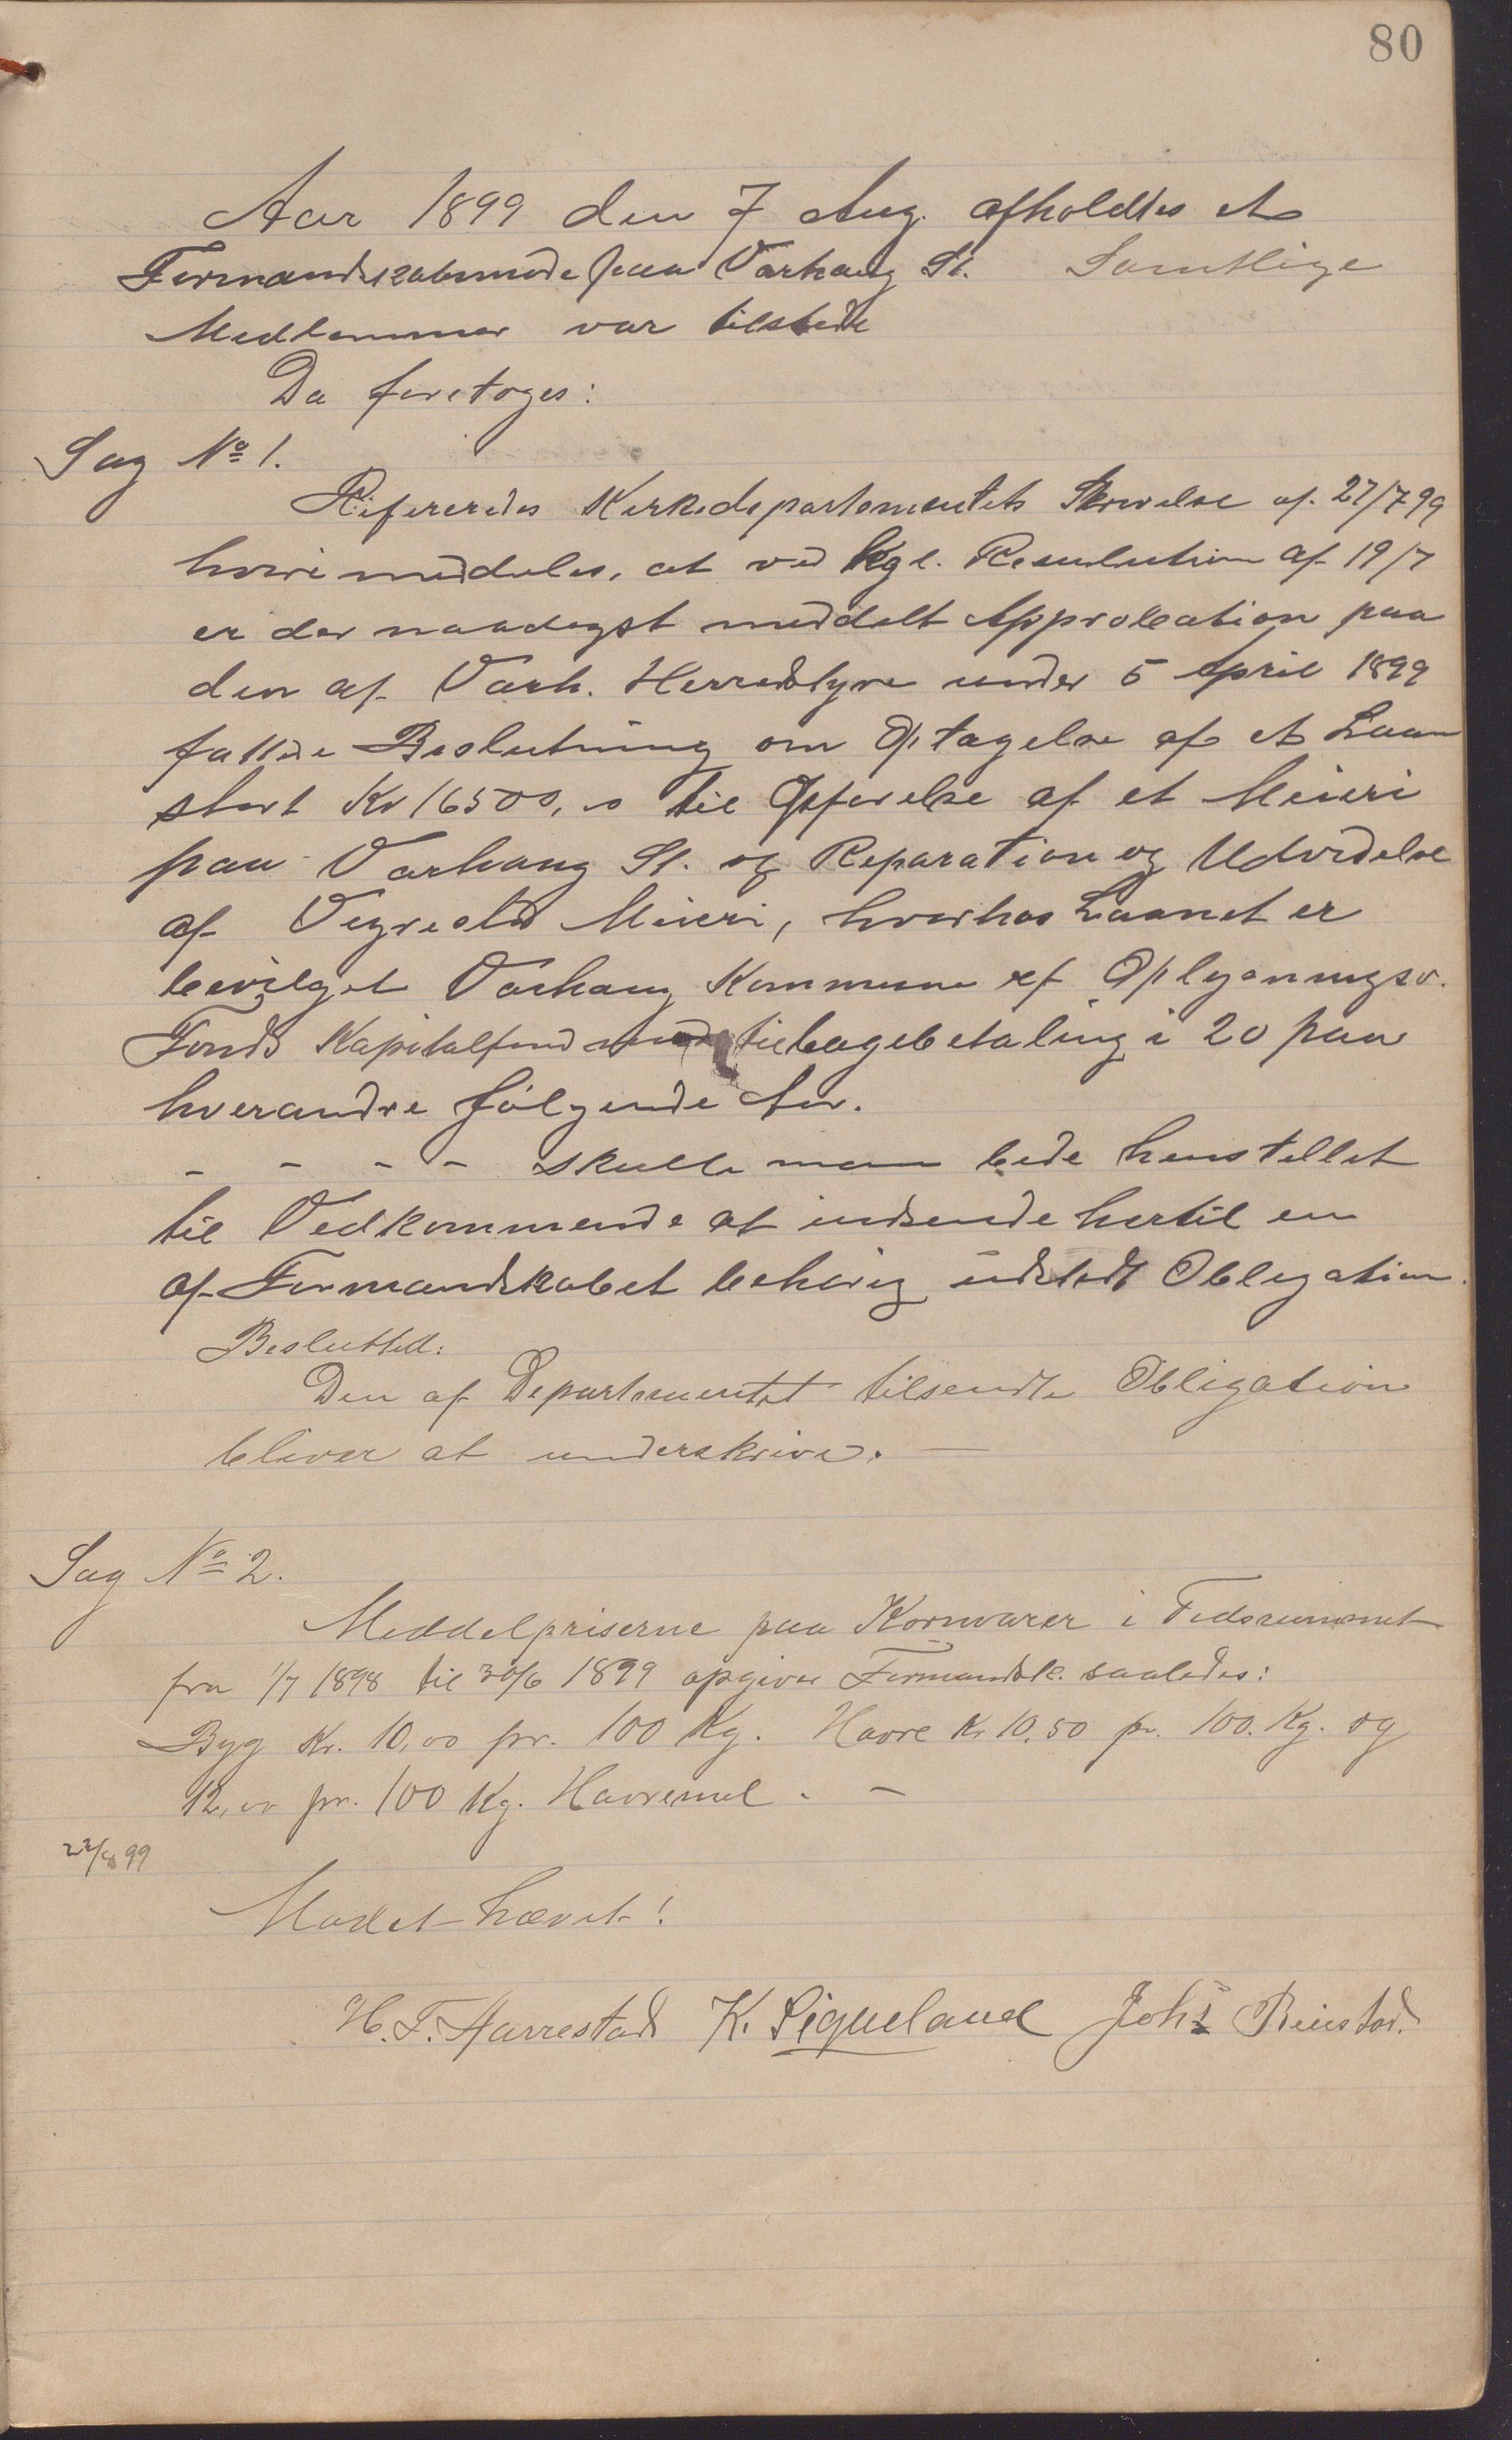 80
Aar 1899 den 7 Aug. afholdtes et
Formandskabsmøde paa Varhaug St. Samtlige
Medlemmer var tilstede
Da foretoges:
Sag No 1.
Refereredes Kirkedepartementets Skrivelse af 27/7 99
hvori meddeles, at ved Kgl. Resolution af 19/7
er der naadigst meddelt Approbation paa
den af Varh. Herredstyre under 5 April 1899
fattede Beslutning om Optagelse af et Laan
stort Kr 16500,00 til Opførelse af et Meieri
paa Varhaug St. og Reparation og Udvidelse
af Vigrestad Meieri, hvorhos Laanet er
bevilget Varhaug Kommune af Oplysningsv.
Fonds Kapitalfond mod tilbagebetaling i 20 paa
hverandre følgende Aar.
- - - - skulle man bede henstillet
til Vedkommende at indsende hertil en
af Formandskabet behørig udstedt Obligation.
Besluttet:
Den af Departementet tilsendte Obligation
bliver at underskrive. —
Sag No 2.
Meddelpriserne paa Kornvarer i Tidsrummet
fra 1/7 1898 til 30/6 1899 opgiver Formandsk. saaledes:
Byg Kr. 10,00 pr. 100 Kg. Havre Kr 10,50 pr. 100. Kg. og
12,00 pr. 100 Kg. Havremel. —
22/8 99
Mødet hævet!
H. T. Harrestad K. Sigueland Johs Reiestad.